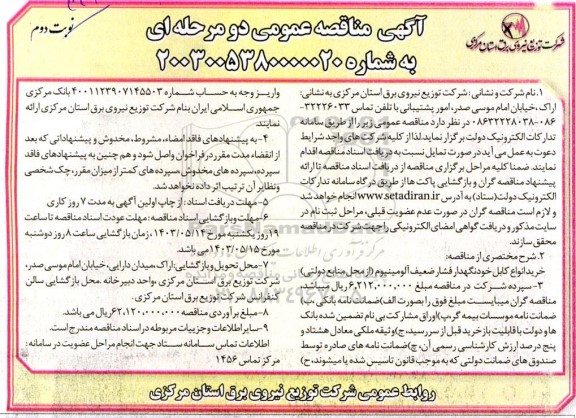 نوبت دوم
آگهی مناقصه عمومی دو مرحله ای
به شماره ۲۰۰۳۰۰۵۳۸۰۰۰۰۰۲۰
شرکت توزیع نیروی برق استان مرکزی
۱. نام شرکت و نشانی : شرکت توزیع نیروی برق استان مرکزی به نشانی:
اراک، خیابان امام موسی صدر، امور پشتیبانی با تلفن تماس ۳۲۲۲۶۰۳۳-
۰۸۶-۰۸۶۳۲۲۲۸۰۳۸ در نظر دارد مناقصه عمومی زیر را از طریق سامانه
تدارکات الکترونیک دولت برگزار نماید. لذا از کلیه شرکت های واجد شرایط
دعوت به عمل می آید در صورت تمایل نسبت به دریافت اسناد مناقصه اقدام
نمایند. ضمنا کلیه مراحل برگزاری مناقصه از دریافت اسناد مناقصه تا ارائه
پیشنهاد مناقصه گران و بازگشایی پاکت ها از طریق درگاه سامانه تدارکات
الکترونیک دولت (ستاد) به آدرس www.setadiran.ir انجام خواهد شد
و لازم است مناقصه گران در صورت عدم عضویت قبلی، مراحل ثبت نام در
سایت مذکور و دریافت گواهی امضای الکترونیکی را جهت شرکت در مناقصه
محقق سازند.
۲. شرح مختصری از مناقصه:
خرید انواع کابل خودنگهدار فشار ضعیف آلومینیوم (از محل منابع دولتی)
۳-سپرده شرکت در مناقصه مبلغ ۶,۲۱۲,۰۰۰,۰۰۰ ریال میباشد.
مناقصه گران میبایست مبلغ فوق را بصورت الف)ضمانت نامه بانکی، ب)
ضمانت نامه موسسات بیمه گر پ)اوراق مشارکت بی نام تضمین شده بانک
ها و دولت با قابلیت باز خرید قبل از سررسید، ج)وثیقه ملکی معادل هشتاد و
پنج درصد ارزش کارشناسی رسمی آن، چ)ضمانت نامه های صادره توسط
صندوق های ضمانت دولتی که به موجب قانون تاسیس شده یا میشوند، ح)
واریز وجه به حساب شماره ۴۰۰۱۱۲۳۹۰۷۱۴۵۵۰۳ بانک مرکزی
جمهوری اسلامی ایران بنام شرکت توزیع نیروی برق استان مرکزی ارائه
نمایند.
۴-به پیشنهادهای فاقد امضاء، مشروط، مخدوش و پیشنهاداتی که بعد
از انقضاء مدت مقرر در فراخوان واصل شود و هم چنین به پیشنهادهای فاقد
سپرده، سپرده های مخدوش، سپرده های کمتر از میزان مقرر، چک شخصی
ونظایر آن ترتیب اثر داده نخواهد شد.
۵-مهلت دریافت اسناد : از چاپ اولین آگهی به مدت ۷ روز کاری
۶-مهلت وبازگشایی اسناد مناقصه: مهلت عودت اسناد مناقصه تا ساعت
۱۹ روز یکشنبه مورخ ۱۴۰۳/۰۵/۱۴، زمان بازگشایی ساعت ۸ روز دوشنبه
مورخ ۱۴۰۳/۰۵/۱۵ می باشد.
۷-محل تحویل وبازگشایی: اراک، میدان دارایی، خیابان امام موسی صدر،
شرکت توزیع برق استان مرکزی، واحد دبیرخانه. محل بازگشایی سالن
کنفرانس شرکت توزیع برق استان مرکزی.
۸-مبلغ برآوردی مناقصه ۶۲,۱۲۰,۰۰۰,۰۰۰ ریال می باشد.
۹-سایر اطلاعات و جزییات مربوطه در اسناد مناقصه مندرج است.
اطلاعات تماس سامانه ستاد جهت انجام مراحل عضویت در سامانه :
مرکز تماس ۱۴۵۶
روابط عمومی شرکت توزیع نیروی برق استان مرکزی